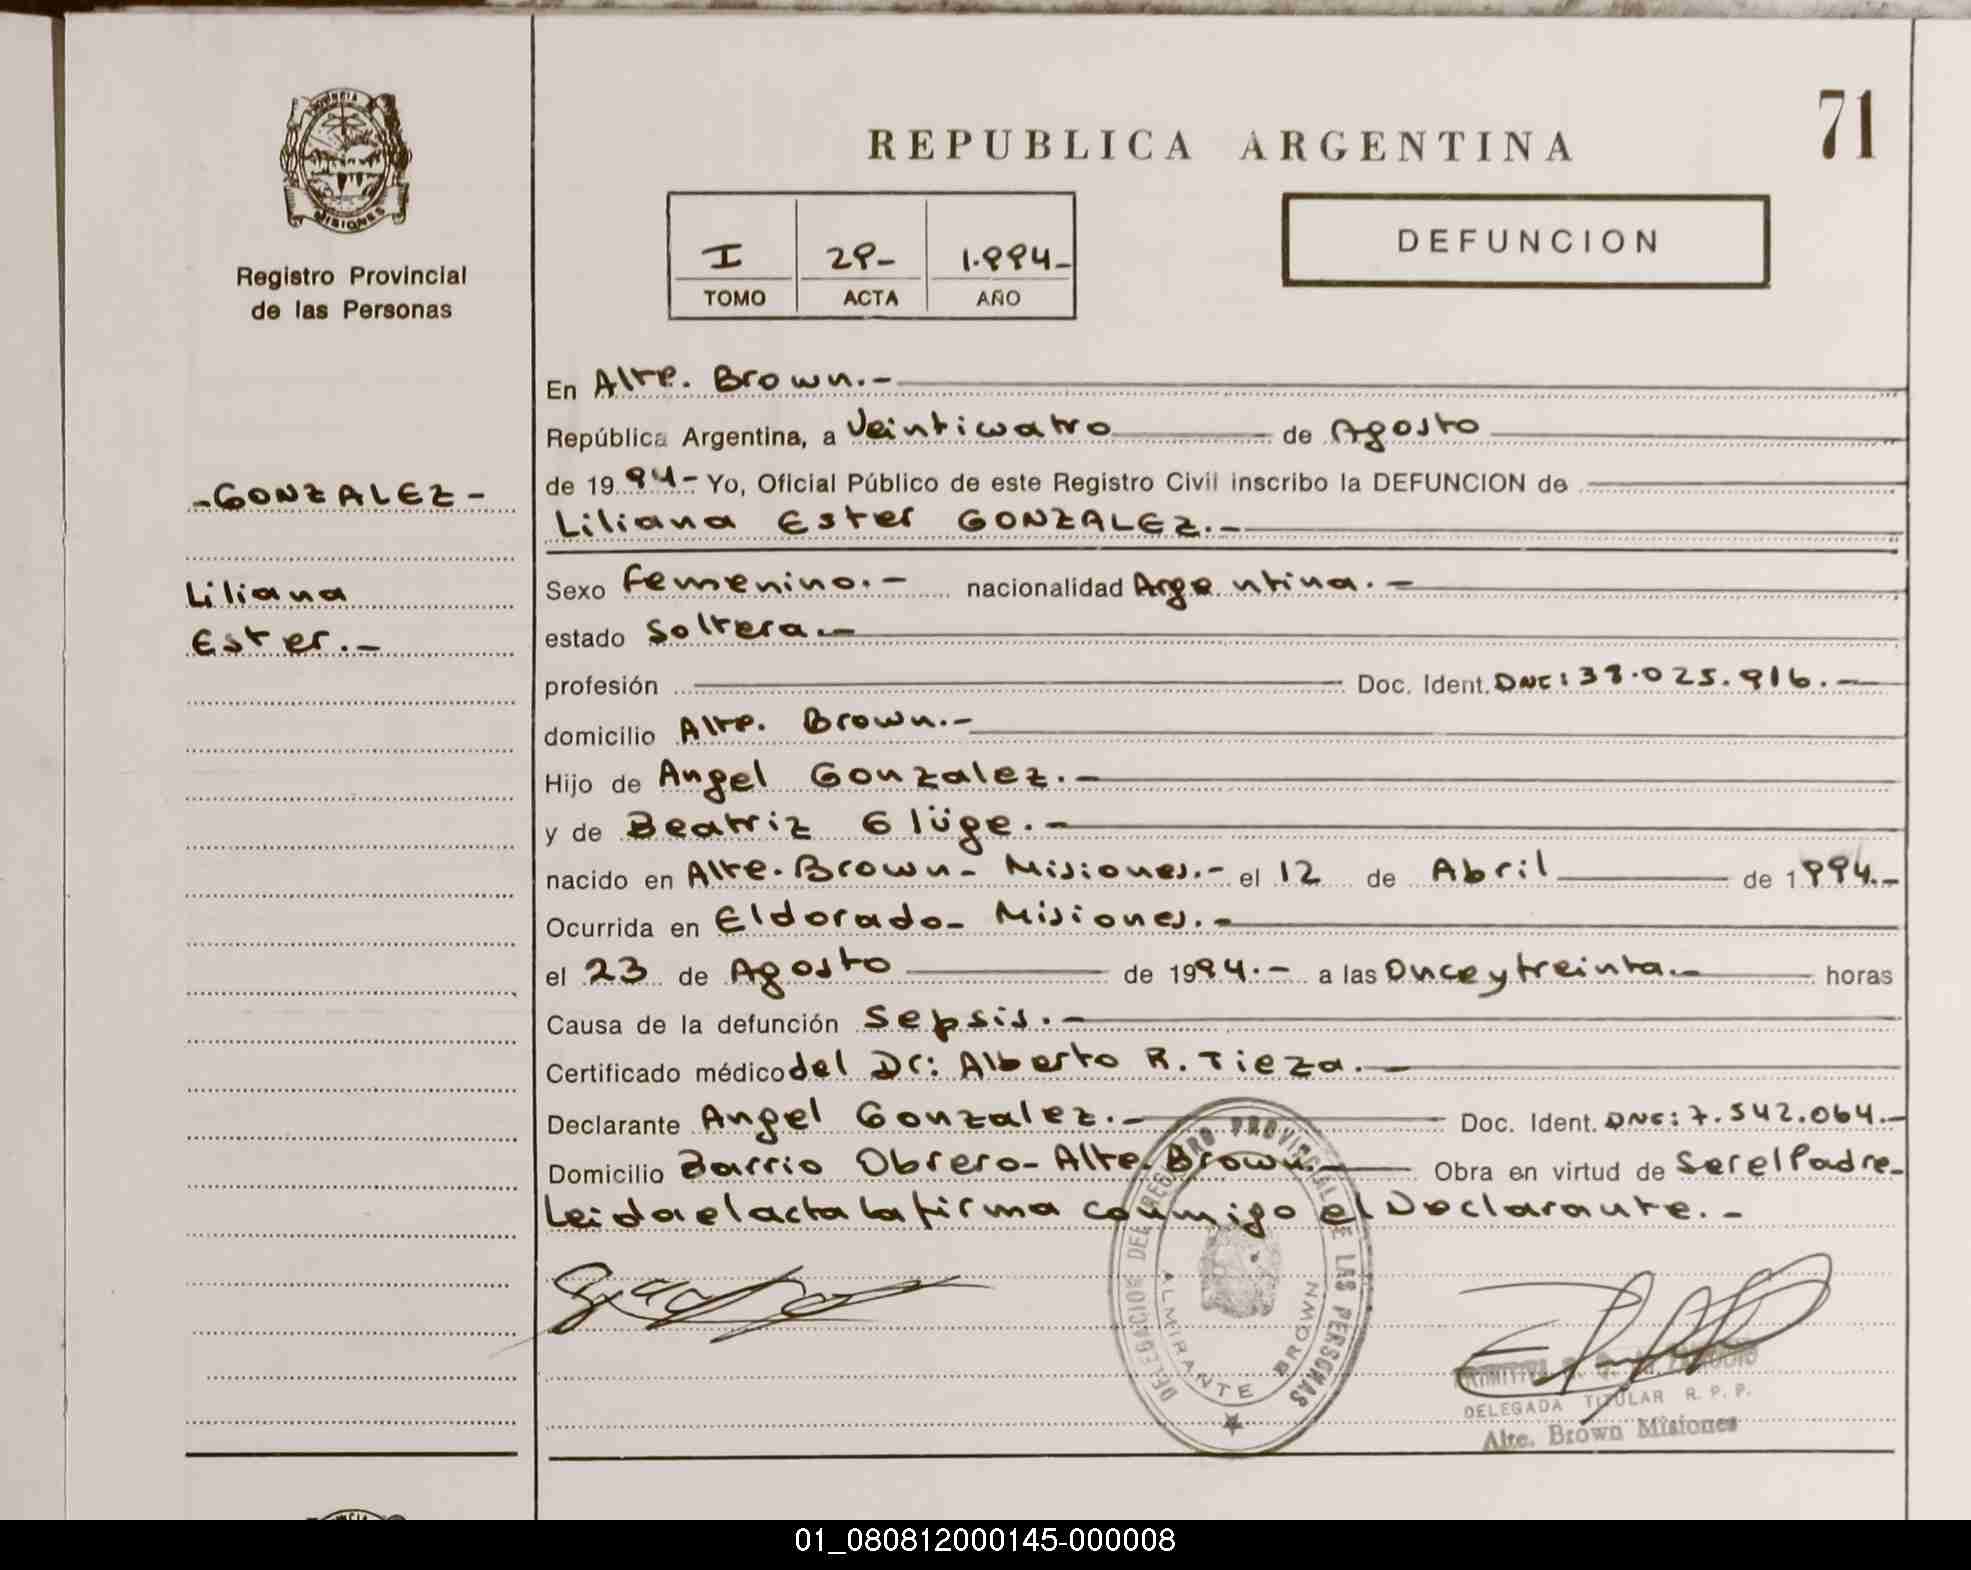 PROVINCIA
MISIONES
Registro Provincial
de las Personas
71
REPUBLICA ARGENTINA
I 29- 1.994-
TOMO ACTA AÑO
DEFUNCION
-GONZALEZ-
Liliana
Ester.-
En Alte. Brown.-
República Argentina, a Veinticuatro de Agosto
de 1994- Yo, Oficial Público de este Registro Civil inscribo la DEFUNCION de
Liliana Ester GONZALEZ.-
Sexo Femenino.- nacionalidad Argentina.-
estado Soltera.-
profesión Doc. Ident. DNI: 38.025.916.-
domicilio Alte. Brown.-
Hijo de Angel Gonzalez.-
y de Beatriz Glüge.-
nacido en Alte. Brown- Misiones.- el 12 de Abril de 1994.-
Ocurrida en Eldorado- Misiones.-
el 23 de Agosto de 1994.- a las Once y treinta.- horas
Causa de la defunción Sepsis.-
Certificado médico del Dr: Alberto R. Tieza.-
Declarante Angel Gonzalez.- Doc. Ident. DNI: 7.542.064.-
Domicilio Barrio Obrero- Alte. Brown.- Obra en virtud de Ser el Padre-
Leida el acta la firma conmigo el Declarante.-
DELEGACION DEL REGISTRO PROVINCIAL DE LAS PERSONAS
ALMIRANTE BROWN
DELEGADA TITULAR R. P. P.
Alte. Brown Misiones
01_080812000145-000008